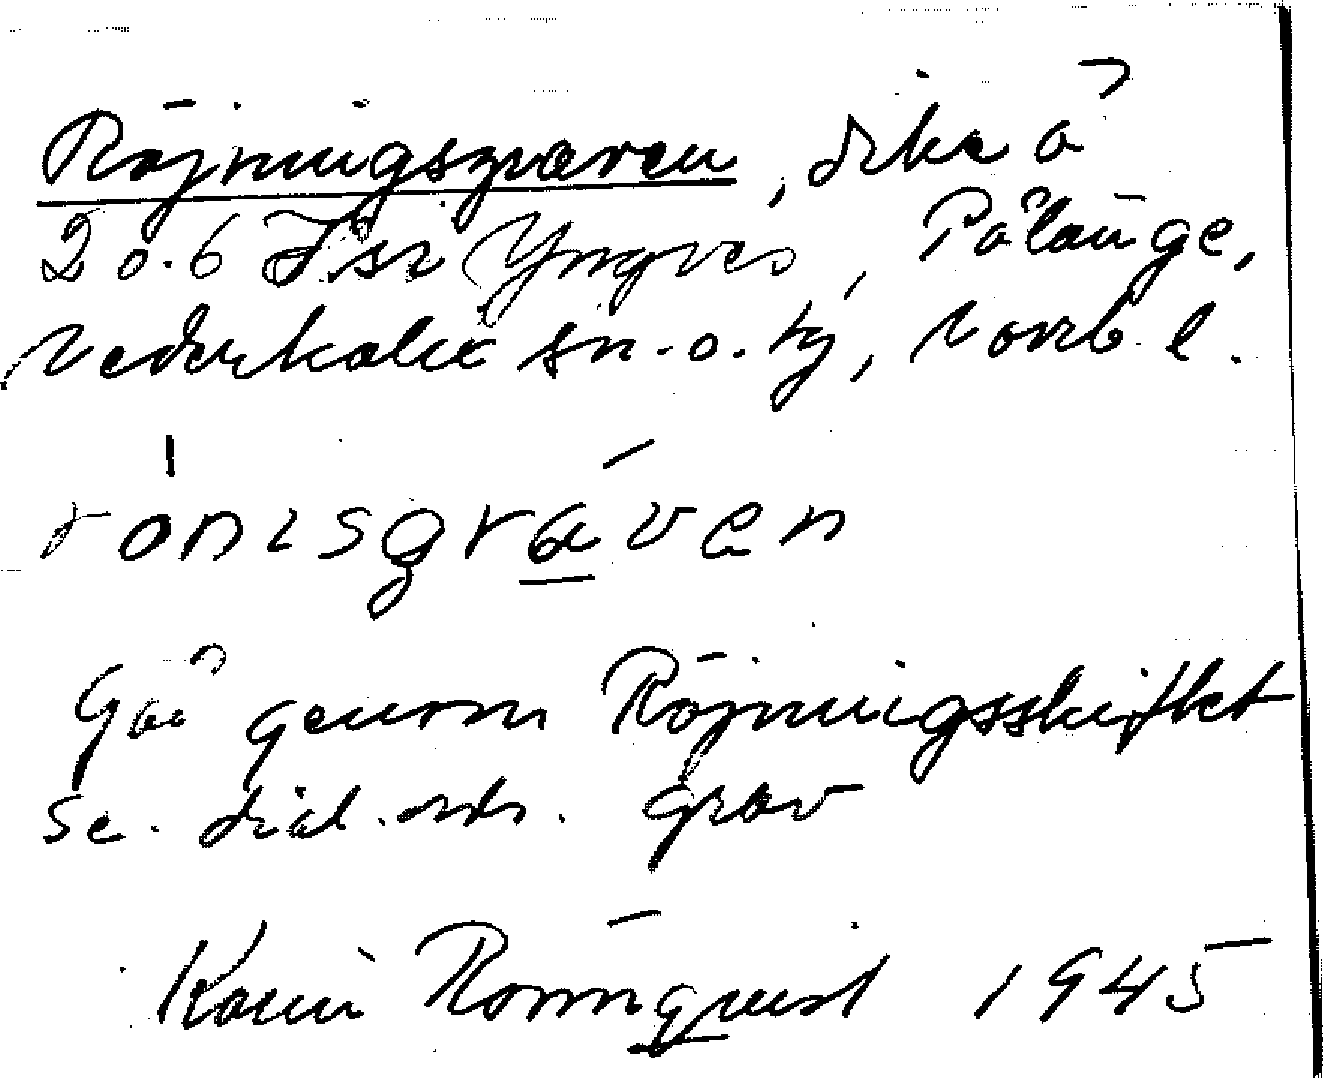 Röjningsgraven, dike å
2 o. 6 Isr Yngves, Pålänge,
Nederkalix sn. o. tg, Norrb. l.
rönisgráven
Går genom Röjningsskiftet
Se. dial. ordr. grav
Karin Rönnqvist 1945